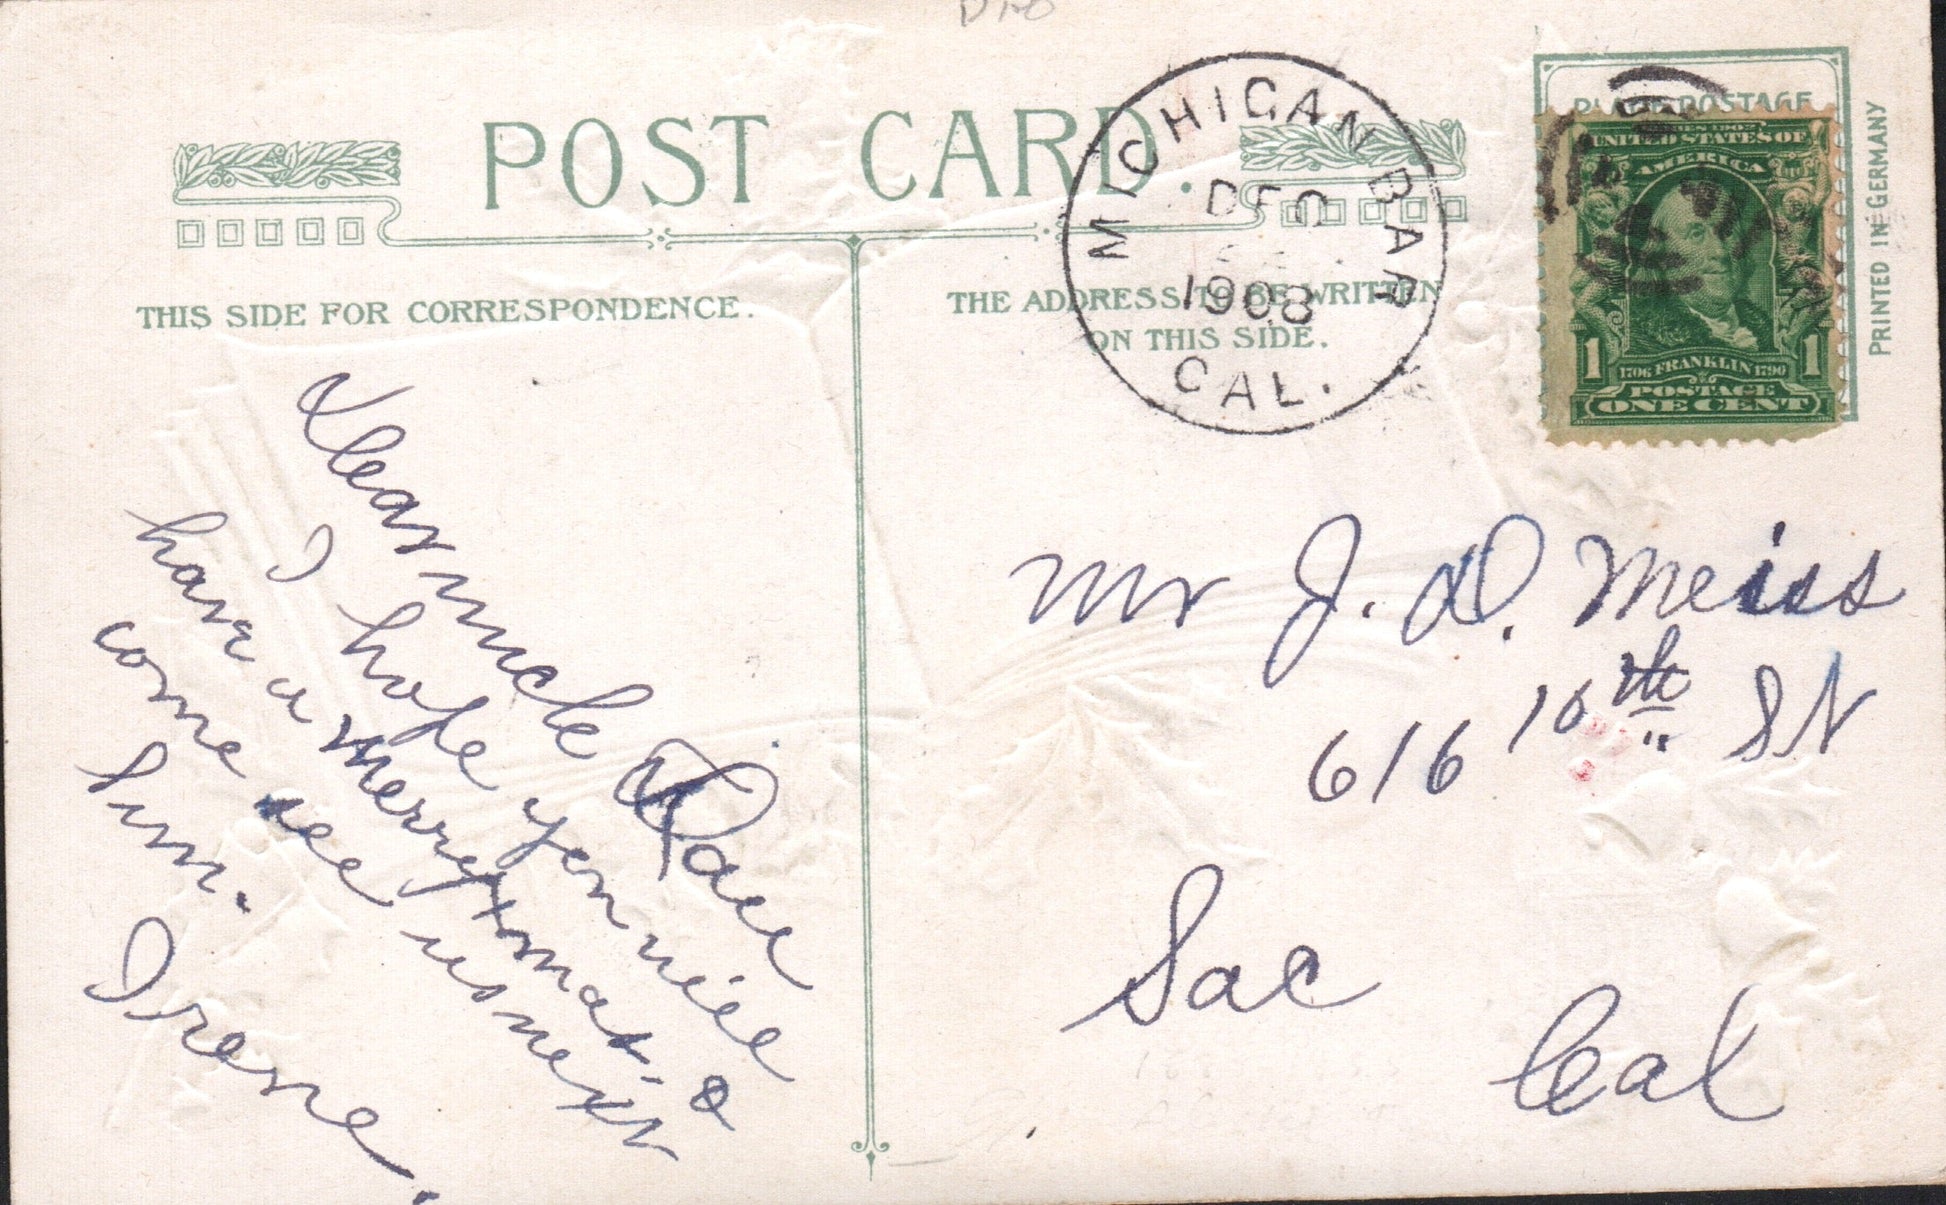 POST CARD.
THIS SIDE FOR CORRESPONDENCE.
THE ADDRESS TO BE WRITTEN
ON THIS SIDE.
MICHIGAN BAR
DEC
1908
CAL.
PLACE POSTAGE
SERIES 1902
UNITED STATES OF
AMERICA
1706 FRANKLIN 1790
1 1
POSTAGE
ONE CENT
PRINTED IN GERMANY
Dear uncle Dave
I hope you will
have a merry xmas. &
come see us next
Sum.
Irene.
Mr J. D. Meiss
616 10th St
Sac
Cal